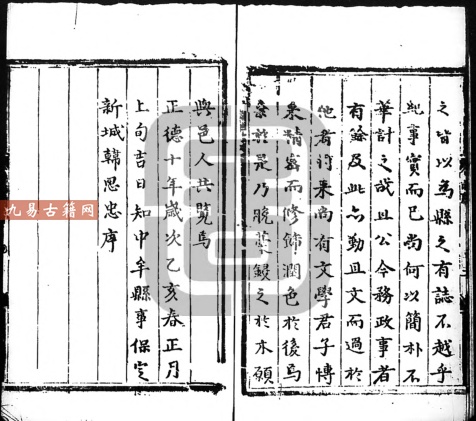 之皆以為縣之有誌不越乎
紀事實而已尚何以簡朴不
華計之哉且公令務政事者
有餘及此亦勤且文而過於
他者行來尚有文學君子博
采精當而修飾潤色於後焉
是乃晚之於木願
與邑人共覽焉
正德十年歲次乙亥春正月
上旬吉日知中牟縣事保定
新城韓思忠序
九易古籍网